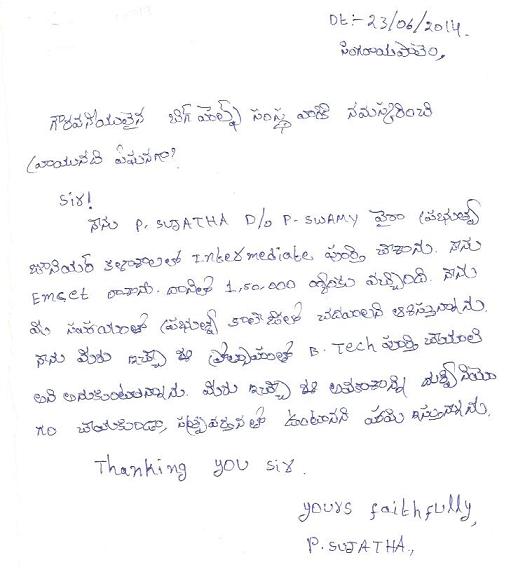 Dt:- 23/06/2014.
సింగరాయపాలెం,
గౌరవనీయులైన బిగ్ హెల్ప్ సంస్థ వారికి నమస్కరించి
వ్రాయునది ఏమనగా?
Sir!
నేను P. SUJATHA D/o P. SWAMY వైరా ప్రభుత్వ
జూనియర్ కళాశాలలో Intermediate పూర్తి చేశాను. నేను
Emcet రాశాను. దానిలో 1,50,000 ర్యాంకు వచ్చింది. నేను
మీ సహాయంతో ప్రభుత్వ కాలేజీలో చదవాలని ఆశిస్తున్నాను.
నేను మీరు ఇచ్చే ఈ ప్రోత్సాహంతో B. Tech పూర్తి చేయాలి
అని అనుకుంటున్నాను. మీరు ఇచ్చే ఈ అవకాశాన్ని దుర్వినియో
గం చేయకుండా, సత్ప్రవర్తనతో ఉంటానని హామి ఇస్తున్నాను.
Thanking you sir.
yours faithfully,
P. SUJATHA.,